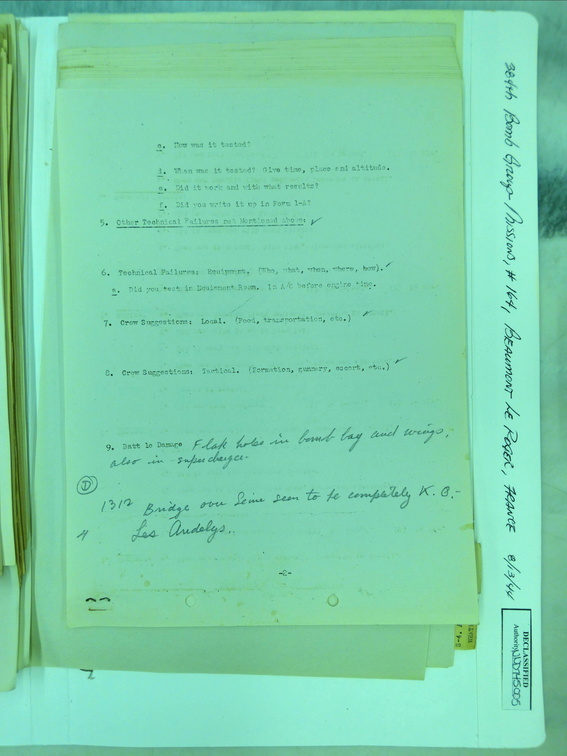 c. How was it tested?
d. When was it tested? Give time, place and altitude.
e. Did it work and with what results?
f. Did you write it up in Form 1-A?
5. Other Technical Failures not Mentioned above: ✓
6. Technical Failures: Equipment. (Who, what, when, where, how). ✓
a. Did you test in Equipment Room. In A/C before engine time.
7. Crew Suggestions: Local. (Food, transportation, etc.) ✓
8. Crew Suggestions: Tactical. (Formation, gunnery, escort, etc.) ✓
9. Battle Damage Flak holes in bomb bay and wings,
also in supercharger.
D
1312 Bridge over Seine seen to be completely K.O.-
4 Les Andelys..
-2-
384th Bomb Group/Missions, #164, BEAUMONT LE ROGER, FRANCE 8/13/44
DECLASSIFIED
Authority NND745005